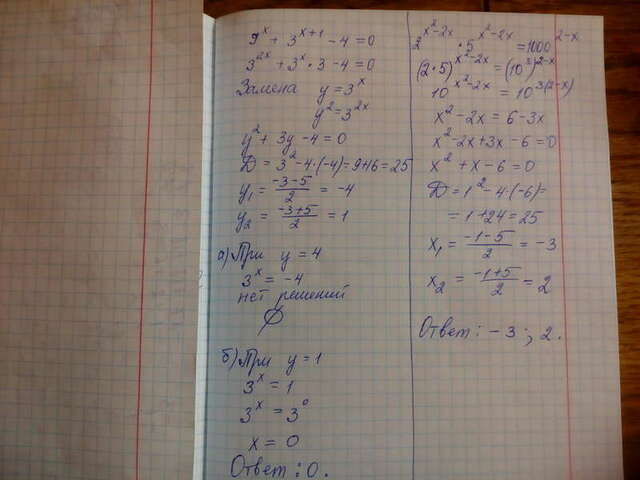 9^x + 3^(x+1) - 4 = 0
3^(2x) + 3^x · 3 - 4 = 0
Замена y = 3^x
y² = 3^(2x)
y² + 3y - 4 = 0
D = 3² - 4·(-4) = 9+16 = 25
y₁ = (-3-5)/2 = -4
y₂ = (-3+5)/2 = 1
а) При y = 4
3^x = -4
нет решений
∅
б) При y = 1
3^x = 1
3^x = 3^0
x = 0
Ответ: 0.
2^(x²-2x) · 5^(x²-2x) = 1000^(2-x)
(2·5)^(x²-2x) = (10³)^(2-x)
10^(x²-2x) = 10^(3(2-x))
x² - 2x = 6 - 3x
x² - 2x + 3x - 6 = 0
x² + x - 6 = 0
D = 1² - 4·(-6) =
= 1 + 24 = 25
x₁ = (-1-5)/2 = -3
x₂ = (-1+5)/2 = 2
Ответ: -3 ; 2.